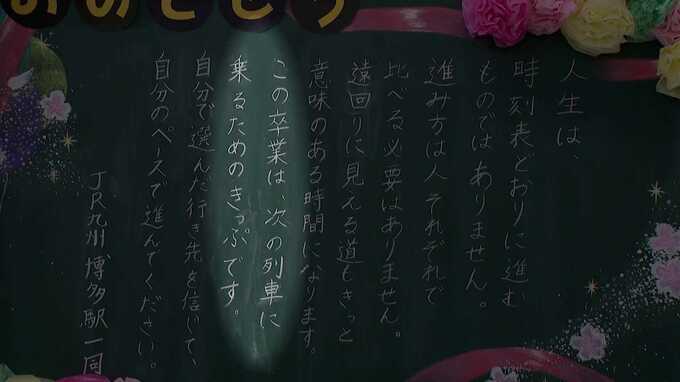 おめでとう
人生は、
時刻表どおりに進む
ものではありません。
進み方は人それぞれで
比べる必要はありません。
遠回りに見える道もきっと
意味のある時間になります。
この卒業は、次の列車に
乗るためのきっぷです。
自分で選んだ行き先を信じて、
自分のペースで進んでください。
JR九州 博多駅一同